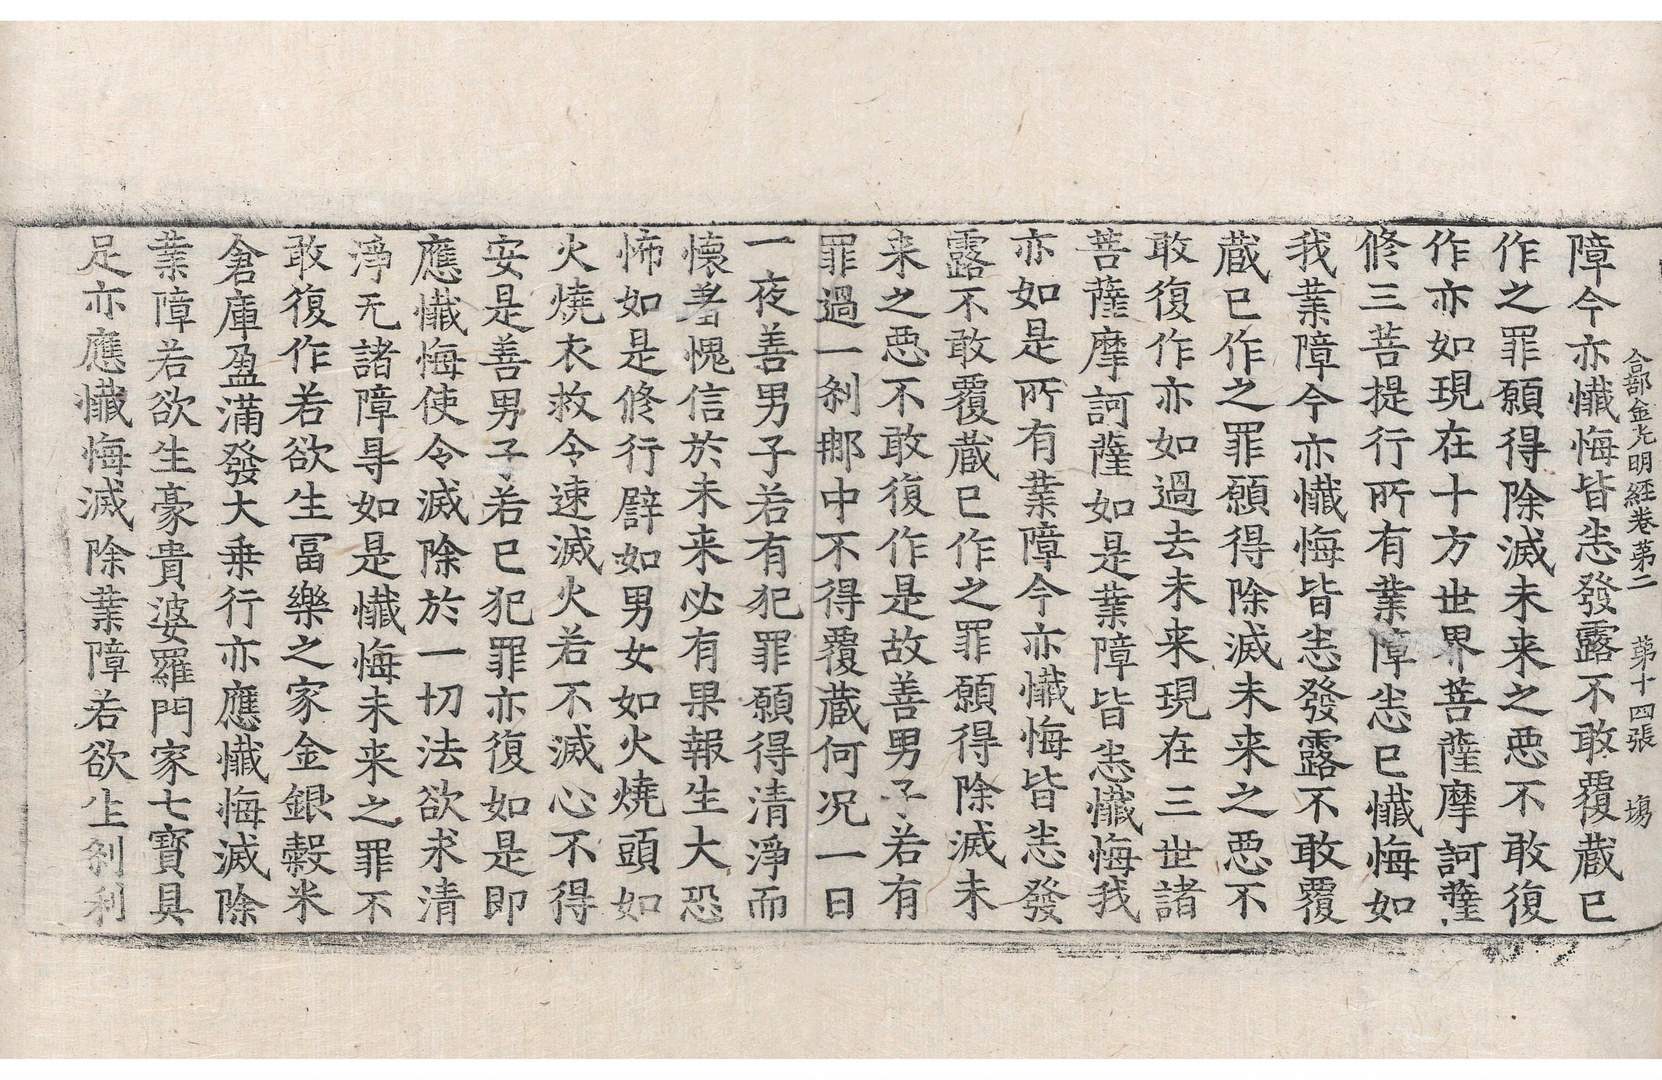 合部金光明經卷第二　第十四張　塲
障今亦懺悔皆悉發露不敢覆蔵已
作之罪願得除滅未来之惡不敢復
作亦如現在十方世界菩薩摩訶薩
修三菩提行所有業障悉已懺悔如
我業障今亦懺悔皆悉發露不敢覆
蔵已作之罪願得除滅未来之惡不
敢復作亦如過去未来現在三世諸
菩薩摩訶薩如是業障皆悉懺悔我
亦如是所有業障今亦懺悔皆悉發
露不敢覆蔵已作之罪願得除滅未
来之惡不敢復作是故善男子若有
罪過一刹那中不得覆蔵何况一日
一夜善男子若有犯罪願得清淨而
懐羞愧信於未来必有果報生大恐
怖如是修行譬如男女如火燒頭如
火燒衣救令速滅火若不滅心不得
安是善男子若已犯罪亦復如是即
應懺悔使令滅除於一切法欲求清
淨无諸障㝵如是懺悔未来之罪不
敢復作若欲生冨樂之家金銀穀米
倉庫盈滿發大乗行亦應懺悔滅除
業障若欲生豪貴婆羅門家七寶具
足亦應懺悔滅除業障若欲生刹利